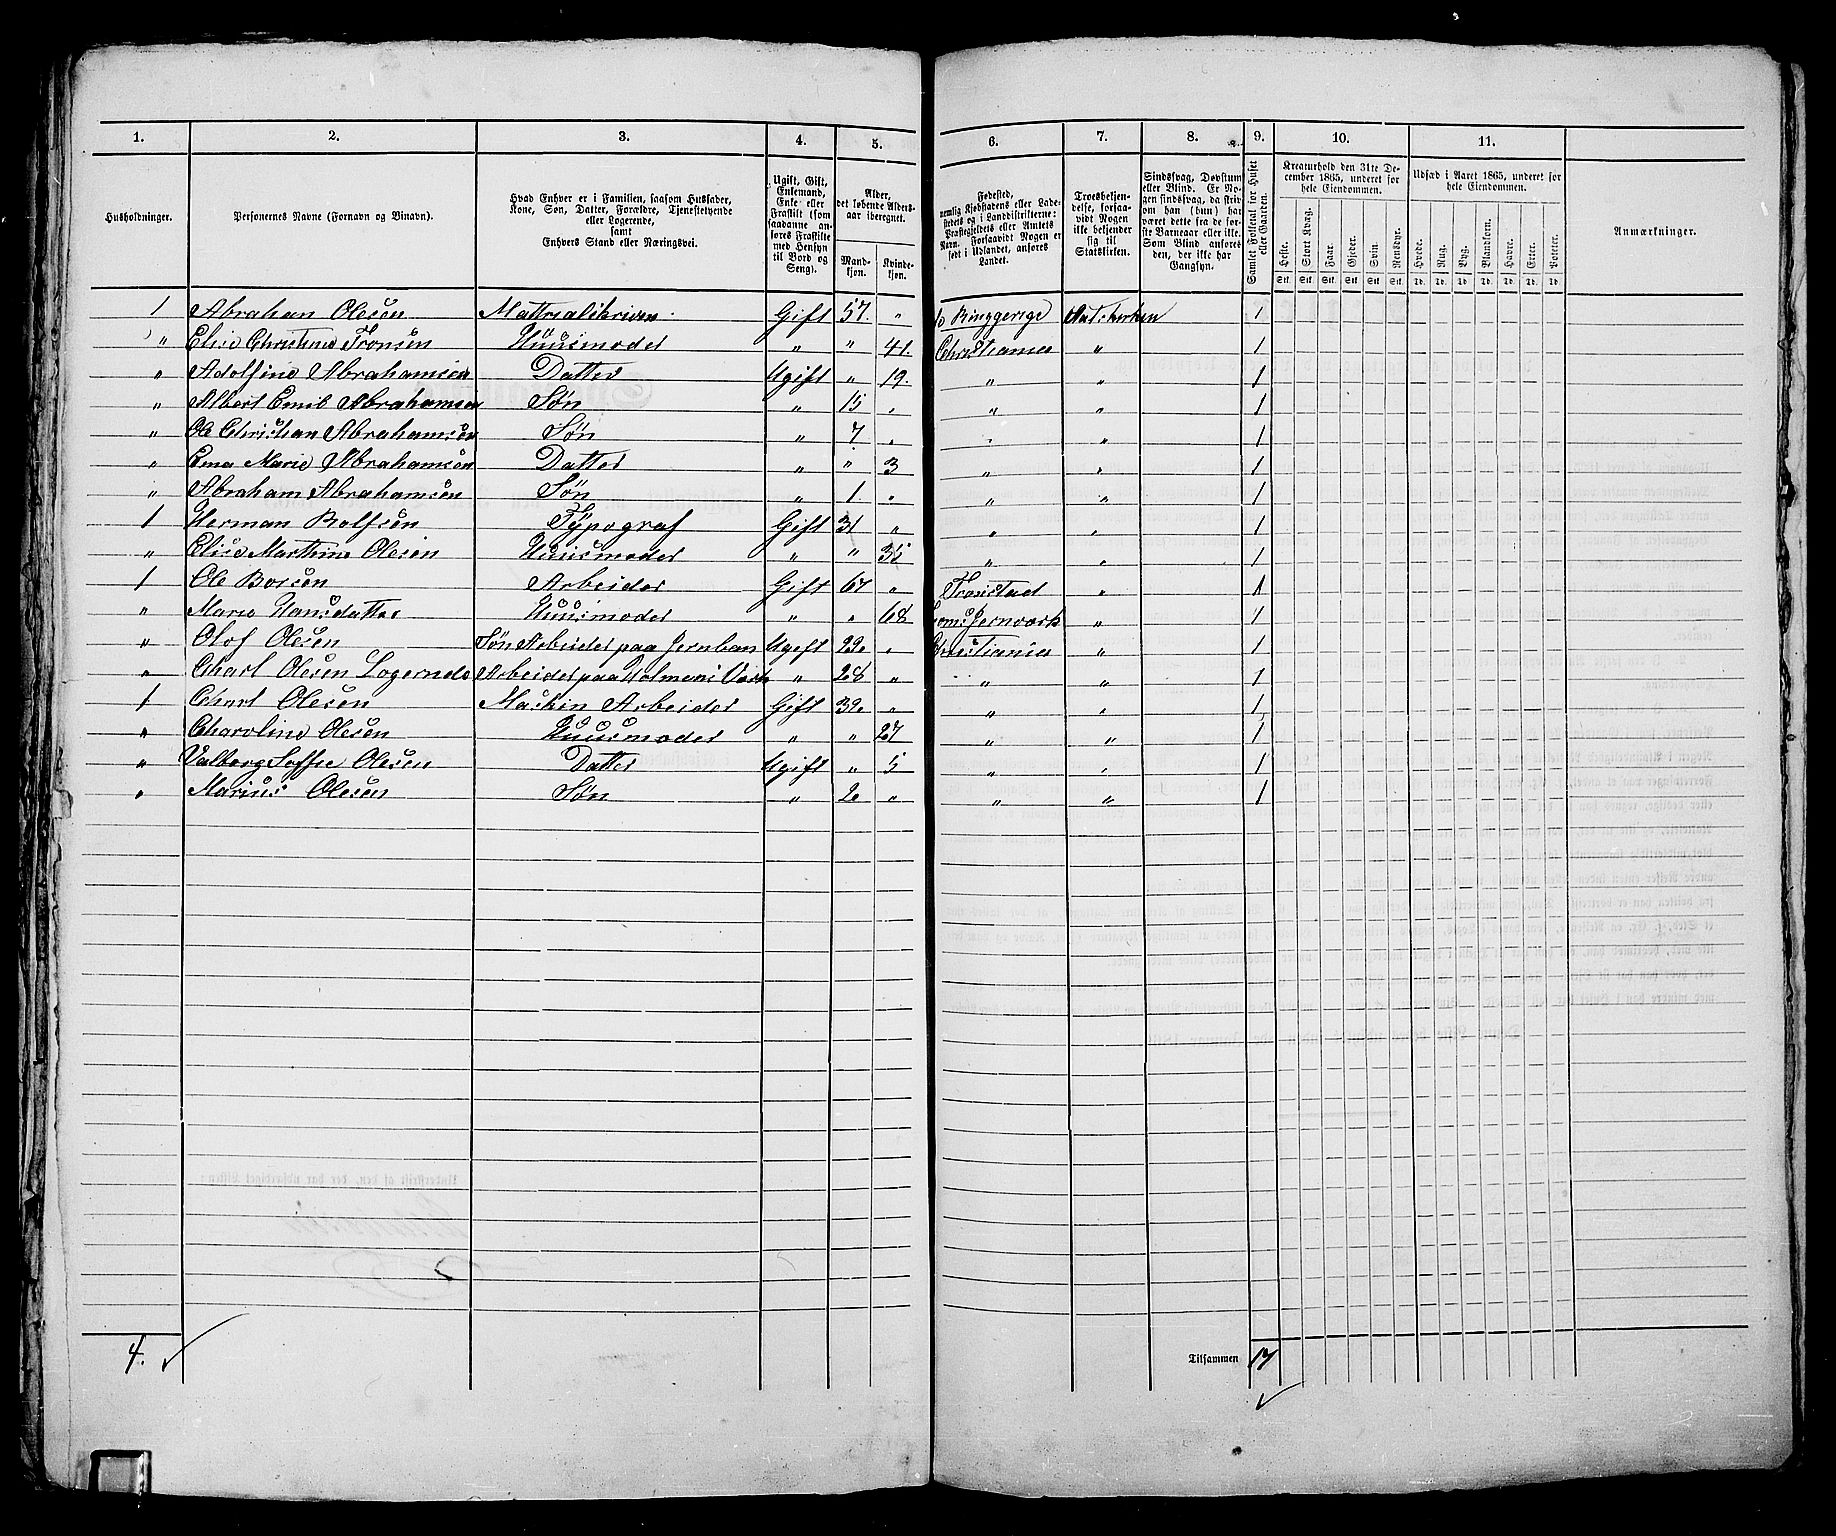 1. 2. 3. 4. 5. 6. 7. 8. 9. 10. 11.
Husholdninger. Personernes Navne (Fornavn og Binavn). Hvad Enhver er i Familien, saasom Husfader, Kone, Søn, Datter, Forældre, Tjenestetyende eller Logerende, samt Enhvers Stand eller Næringsvei. Ugift, Gift, Enkemand, Enke eller Fraskilt (som saadanne anføres Fraskilte med Hensyn til Bord og Seng). Alder, det løbende Aldersaar iberegnet. Mandkjøn. Kvindekjøn. Fødested, nemlig Kjøbstadens eller Ladestedets og i Landdistrikterne: Præstegjeldets eller Amtets Navn. Forsaavidt Nogen er født i Udlandet, anføres Landet. Troesbekjendelse, forsaavidt Nogen ikke bekjender sig til Statskirken. Sindssvag, Døvstum eller Blind. Er Nogen sindssvag, da skrives om han (hun) har været dette fra de første Barneaar eller ikke. Som Blind anføres den, der ikke har Gangsyn. Samlet Folketal for Huset eller Gaarden. Kreaturhold den 31te December 1865, underet for hele Eiendommen. Udsæd i Aaret 1865, underet for hele Eiendommen. Anmærkninger.
Heste. Stort Kvæg. Faar. Gjeder. Svin. Rensdyr. Hvede. Rug. Byg. Blandkorn. Havre. Erter. Poteter.
Stk. Stk. Stk. Stk. Stk. Stk. Td. Td. Td. Td. Td. Td. Td.
1 Abrahan Olesen Mattrialskriver Gift 57. " Ringgerige Statskirken 1
" Elise Christine Tronsen Huusmoder " " 41. Christiania " 1
" Adolfine Abrahamsen Datter Ugift " 19. " " 1
" Albert Emil Abrahamsen Søn " 15 " " " 1
" Ole Christian Abrahamsen Søn " 7 " " " 1
" Ema Marie Abrahamsen Datter " " 3 " " 1
" Abraham Abrahamsen Søn " 1. " " " 1
1 Herman Rolfsen Typograf Gift 31 " " " 1
" Elise Martine Olesen Huusmoder " " 35 " " 1
1 Ole Borsen Arbeider Gift 67 " " 1
" Marie Hansdatter Huusmoder " " 68 " 1
" Olof Olesen Søn Arbeider paa Jernban Ugift 22 " Christiania " 1
" Charl Olesen Logernde Arbeider paa Holmens Værk " 28 " " 1
1 Charl Olesen Maskin Arbeider Gift 32 " " " 1
" Charoline Olesen Huusmoder " " 27 " " 1
" Valborg Soffie Olesen Datter Ugift " 5 " " 1
" Marius Olesen Søn " 2 " " " 1
4. Tilsammen 17